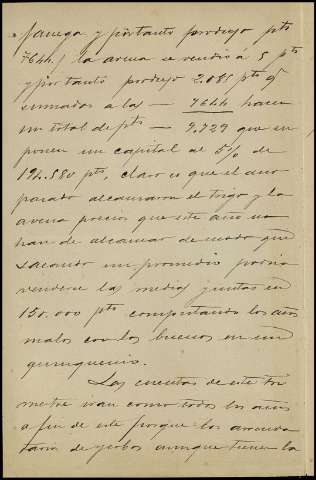 fanega y portanto produjo pts
7644. y la avena se vendió á 5 pts
y portanto produjo 2.085 pts qe
sumados a las — 7644 hacen
un total de pts — 9.729 que su
ponen un capital al 5% de
194.580 pts, claro es que el año
pasado alcanzaron el trigo y la
avena precios que este año no
han de alcanzar de modo que
sacando un promedio podria
venderse las medias juntas en
150.000 pts computando los años
malos con los buenos en un
quinquenio.
Las cuentas de este tri
mestre iran como todos los años
a fin de este porque los arrenda
tarios de yerbas aunque tienen la